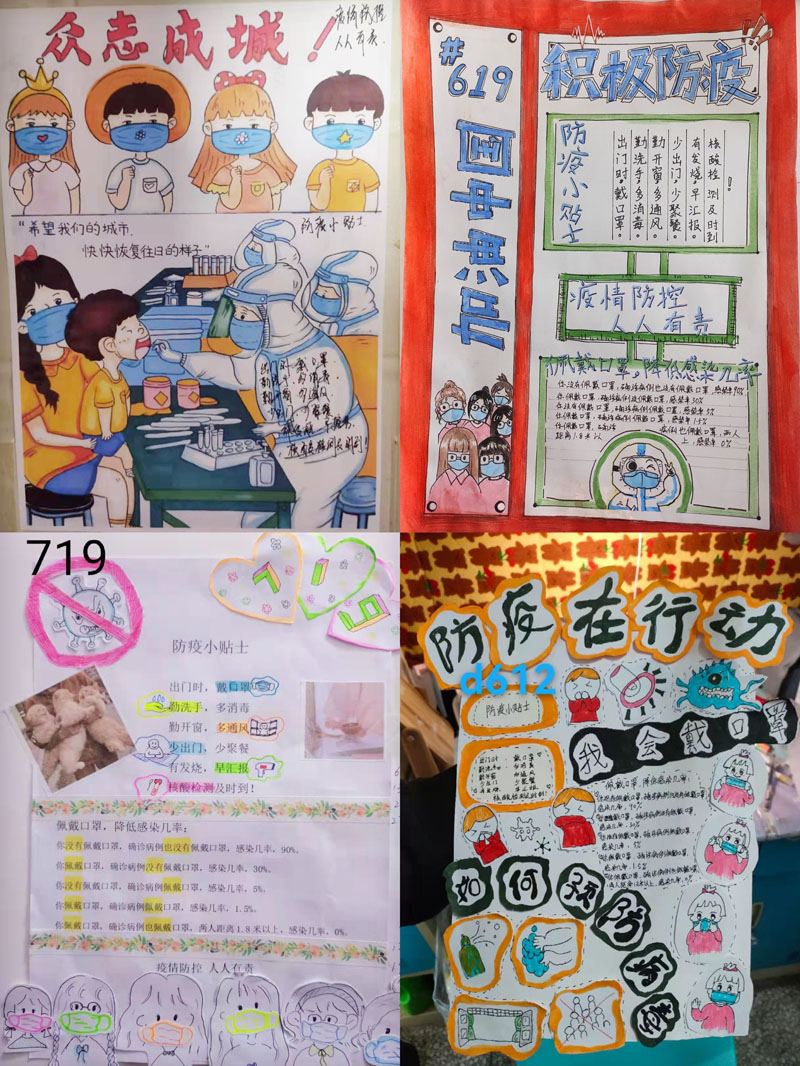 众志成城！
疫情防控
人人有责.
"希望我们的城市,
快快恢复往日的样子"
防疫小贴士
#619
加油中国
积极防疫
防疫小贴士
出门时,戴口罩。
勤洗手,多消毒。
勤开窗,多通风。
少出门,少聚餐。
有发烧,早汇报。
核酸检测及时到！
疫情防控
人人有责
佩戴口罩,降低感染几率
你没有佩戴口罩,确诊病例也没有佩戴口罩,感染率90%
你佩戴口罩,确诊病例没佩戴口罩,感染率30%
你没有佩戴口罩,确诊病例佩戴口罩,感染率5%
你佩戴口罩,确诊病例佩戴口罩,感染率1.5%
你佩戴口罩,确诊病例也佩戴口罩,两人
距离1.8米以上,感染率0%
719
719
防疫小贴士
出门时，戴口罩
勤洗手，多消毒
勤开窗，多通风
少出门，少聚餐
有发烧，早汇报
核酸检测及时到！
佩戴口罩，降低感染几率：
你没有佩戴口罩，确诊病例也没有佩戴口罩，感染几率，90%。
你佩戴口罩，确诊病例没有佩戴口罩，感染几率，30%。
你没有佩戴口罩，确诊病例佩戴口罩，感染几率，5%。
你佩戴口罩，确诊病例佩戴口罩，感染几率，1.5%。
你佩戴口罩，确诊病例也佩戴口罩，两人距离1.8米以上，感染几率，0%。
疫情防控 人人有责
防疫在行动
d612
防疫小贴士
我会戴口罩
出门时 戴口罩
勤洗手 多消毒
勤开窗 多通风
少出门 少聚餐
有发烧 早汇报
核酸检测及时到!
佩戴口罩,降低感染几率:
如何预防